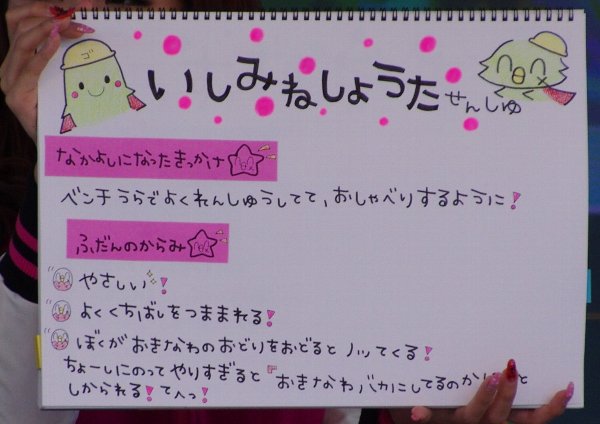 ゴ
いしみねしょうたせんしゅ
なかよしになったきっかけ
ベンチうらでよくれんしゅうしてて、おしゃべりするように!
ふだんのからみ
やさしい!
よくくちばしをつままれる!
ぼくがおきなわのおどりをおどるとノッてくる!
ちょーしにのってやりすぎると『おきなわバカにしてるのか
しかられる!てへっ!